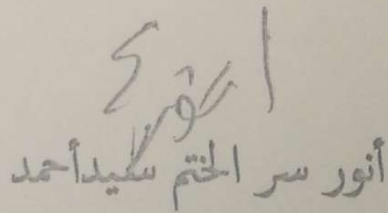 أنور سر الختم سيدأحمد